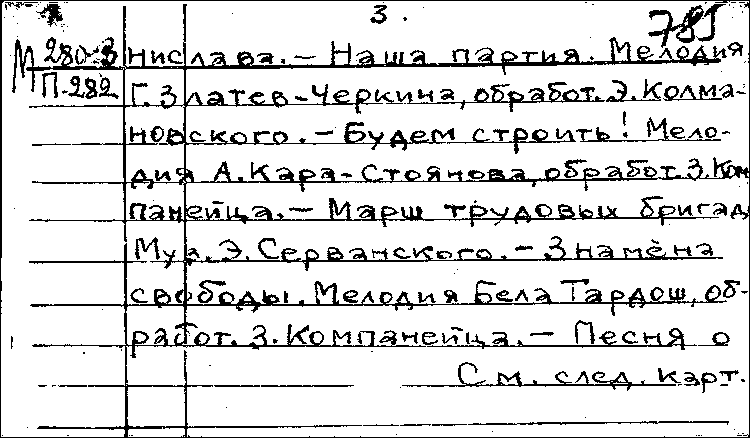 3.
785
М 280-3
П-282
нислава. – Наша партия. Мелодия
Г. Златев-Черкина, обработ. Э. Колма-
новского. – Будем строить! Мело-
дия А. Кара-Стоянова, обработ. З. Ком
панейца. – Марш трудовых бригад.
Муз. Э. Серванского. – Знамёна
свободы. Мелодия Бела Тардош, об-
работ. З. Компанейца. – Песня о
См. след. карт.